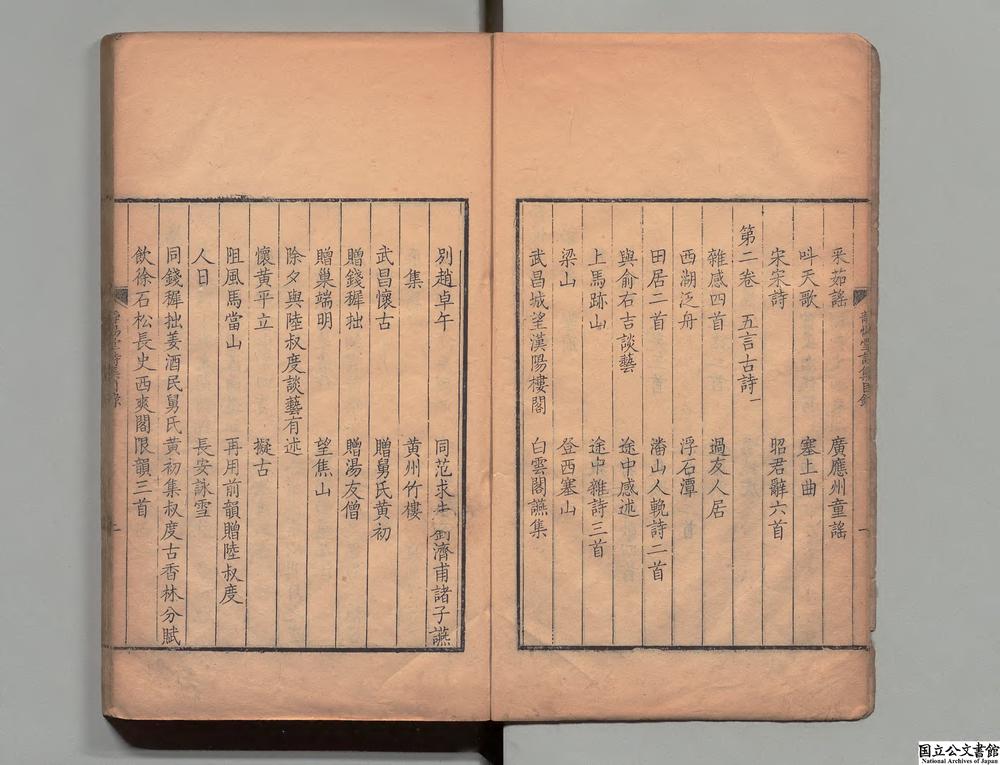 采茹謠　廣應州童謠
呌天歌　塞上曲
宋宋詩　昭君辭六首
第二卷　五言古詩一
雜感四首　過友人居
西湖泛舟　浮石潭
田居二首　潘山人輓詩二首
與俞右吉談藝　途中感述
上馬跡山　途中雜詩三首
梁山　登西塞山
武昌城望漢陽樓閣　白雲閣讌集
別趙卓午　同范求 劉濟甫諸子讌
集　黃州竹樓
武昌懷古　贈舅氏黃初
贈錢穉拙　贈湯友僧
贈巢端明　望焦山
除夕與陸叔度談藝有述
懷黃平立　擬古
阻風馬當山　再用前韻贈陸叔度
人日　長安詠雪
同錢穉拙姜酒民舅氏黃初集叔度古香林分賦
飲徐石松長史西爽閣限韻三首
国立公文書館
National Archives of Japan